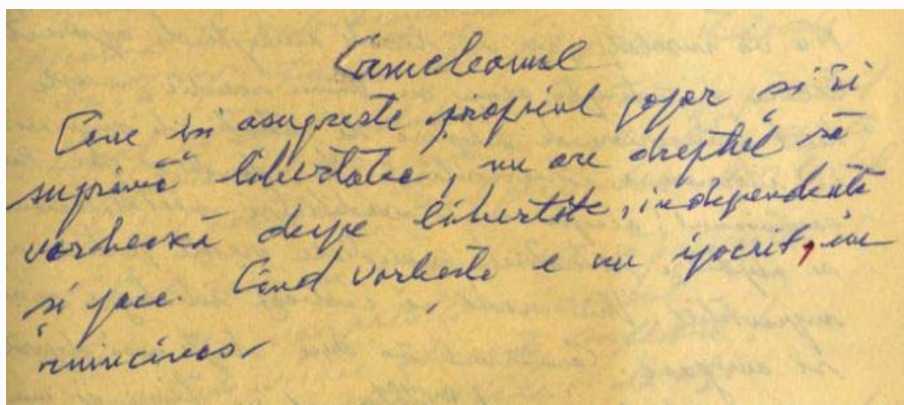 Cameleonul
Cine își asuprește propriul popor și îi
suprimă libertatea, nu are dreptul să
vorbească despre libertate, independență
și pace. Când vorbește e un ipocrit, un
mincinos.